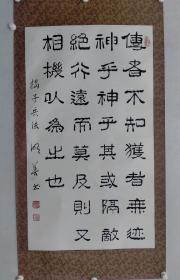 傳者不知獲者無迹
神乎神乎其或隔敵
絕行遠而莫及則又
相機以為之也
揭子兵法